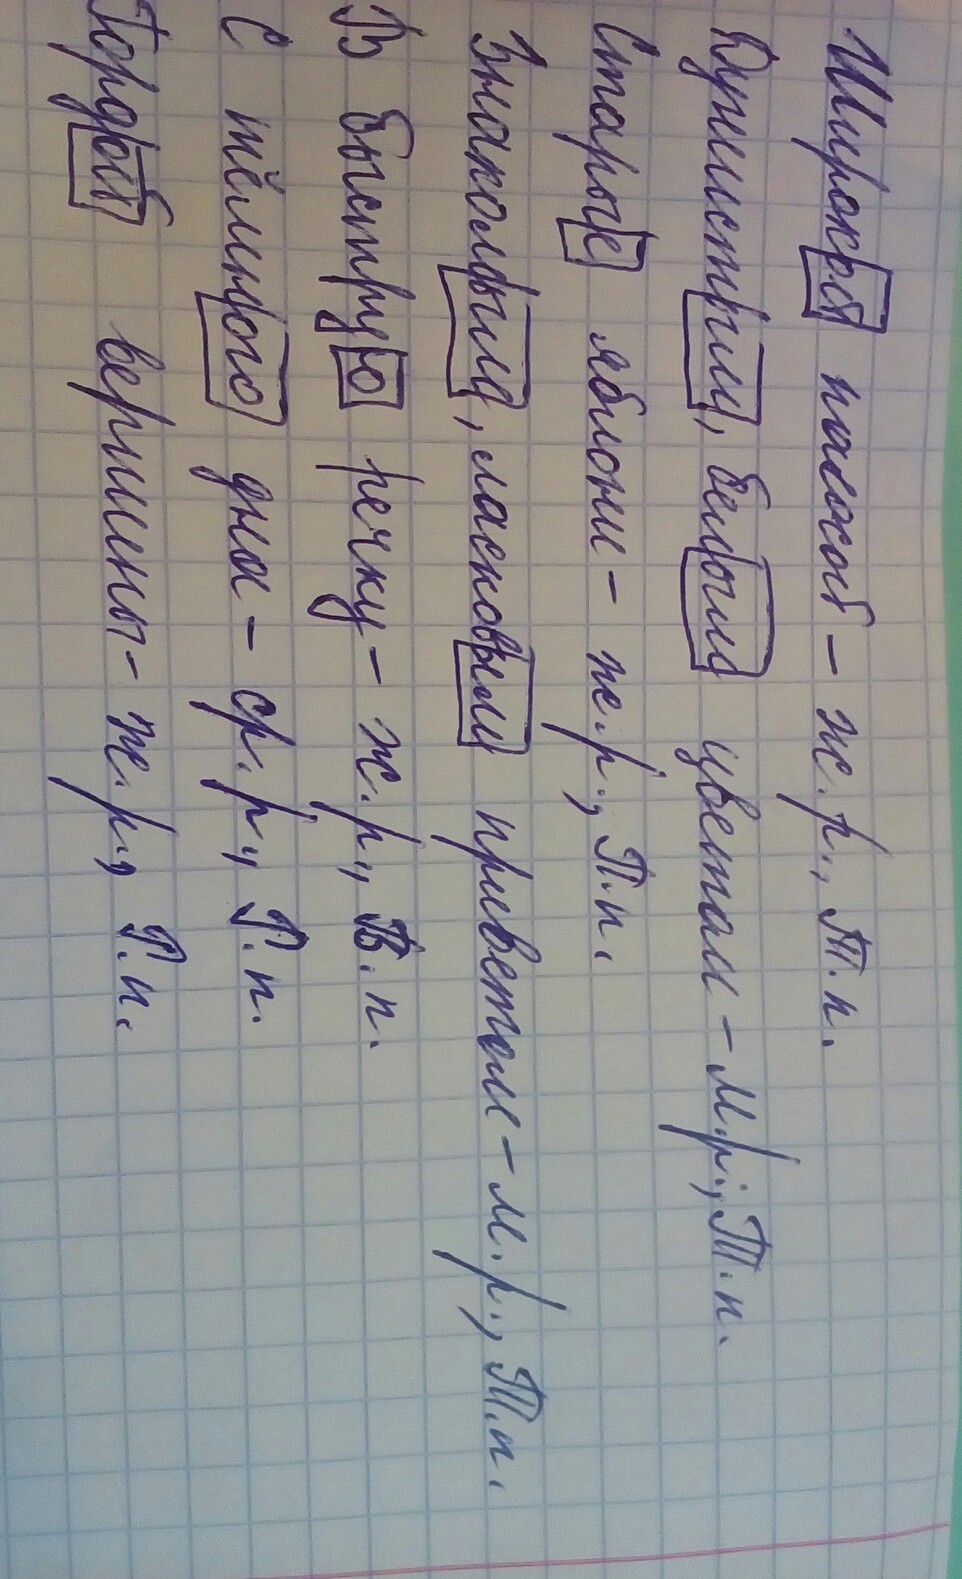 Широкой полосой - ж.р., Т.п.
Душистым, белым цветам - м.р., Т.п.
Старые яблони - п.р., П.п.
Знакомым, ласковым приветом - м.р., Т.п.
В быструю речку - ж.р., В.п.
С тёмного дна - ср.р., Р.п.
Гордой вершины - ж.р., Р.п.